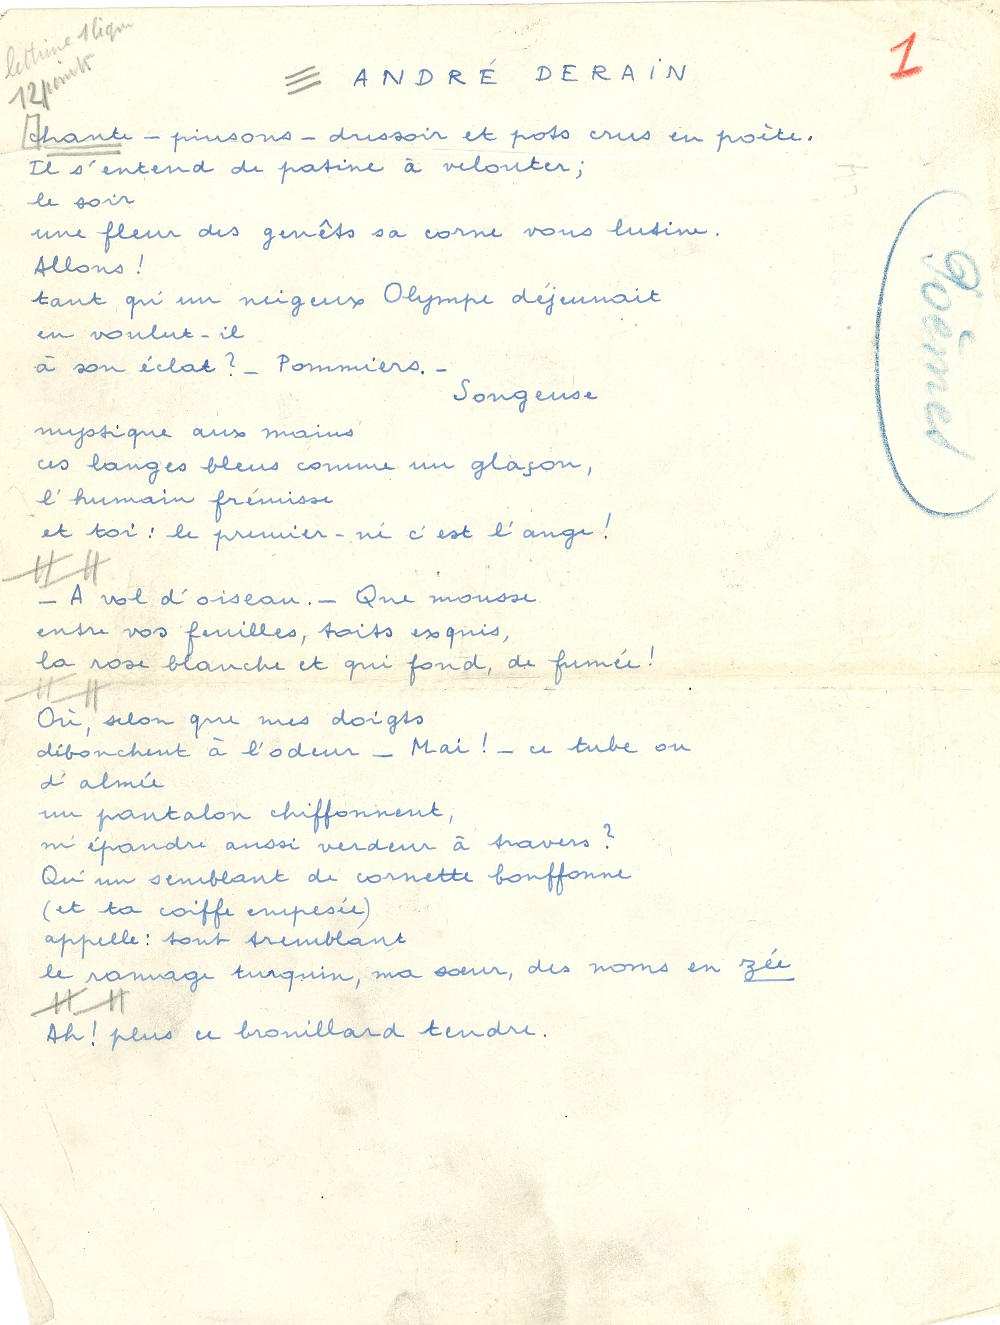 lettrine 1 lign
12 points
1
ANDRÉ DERAIN
Chante – pinsons – dressoir et pots crus en poète.
Il s'entend de patine à velouter;
le soir
une fleur des genêts sa corne vous lutine.
Allons !
tant qu'un neigeux Olympe déjeunait
en voulut-il
à son éclat ? – Pommiers. –
Songeuse
mystique aux mains
ces langes bleus comme un glaçon,
l'humain frémisse
et toi : le premier-né c'est l'ange !
– A vol d'oiseau. – Que mousse
entre vos feuilles, toits exquis,
la rose blanche et qui fond, de fumée !
Où, selon que mes doigts
débouchent à l'odeur – Mai ! – ce tube ou
d'almée
un pantalon chiffonnent,
m'épandre aussi verdeur à travers ?
Qu'un semblant de cornette bouffonne
(et ta coiffe empesée)
appelle : tout tremblant
le ramage turquin, ma sœur, des noms en zée
Ah ! plus ce brouillard tendre.
Poèmes